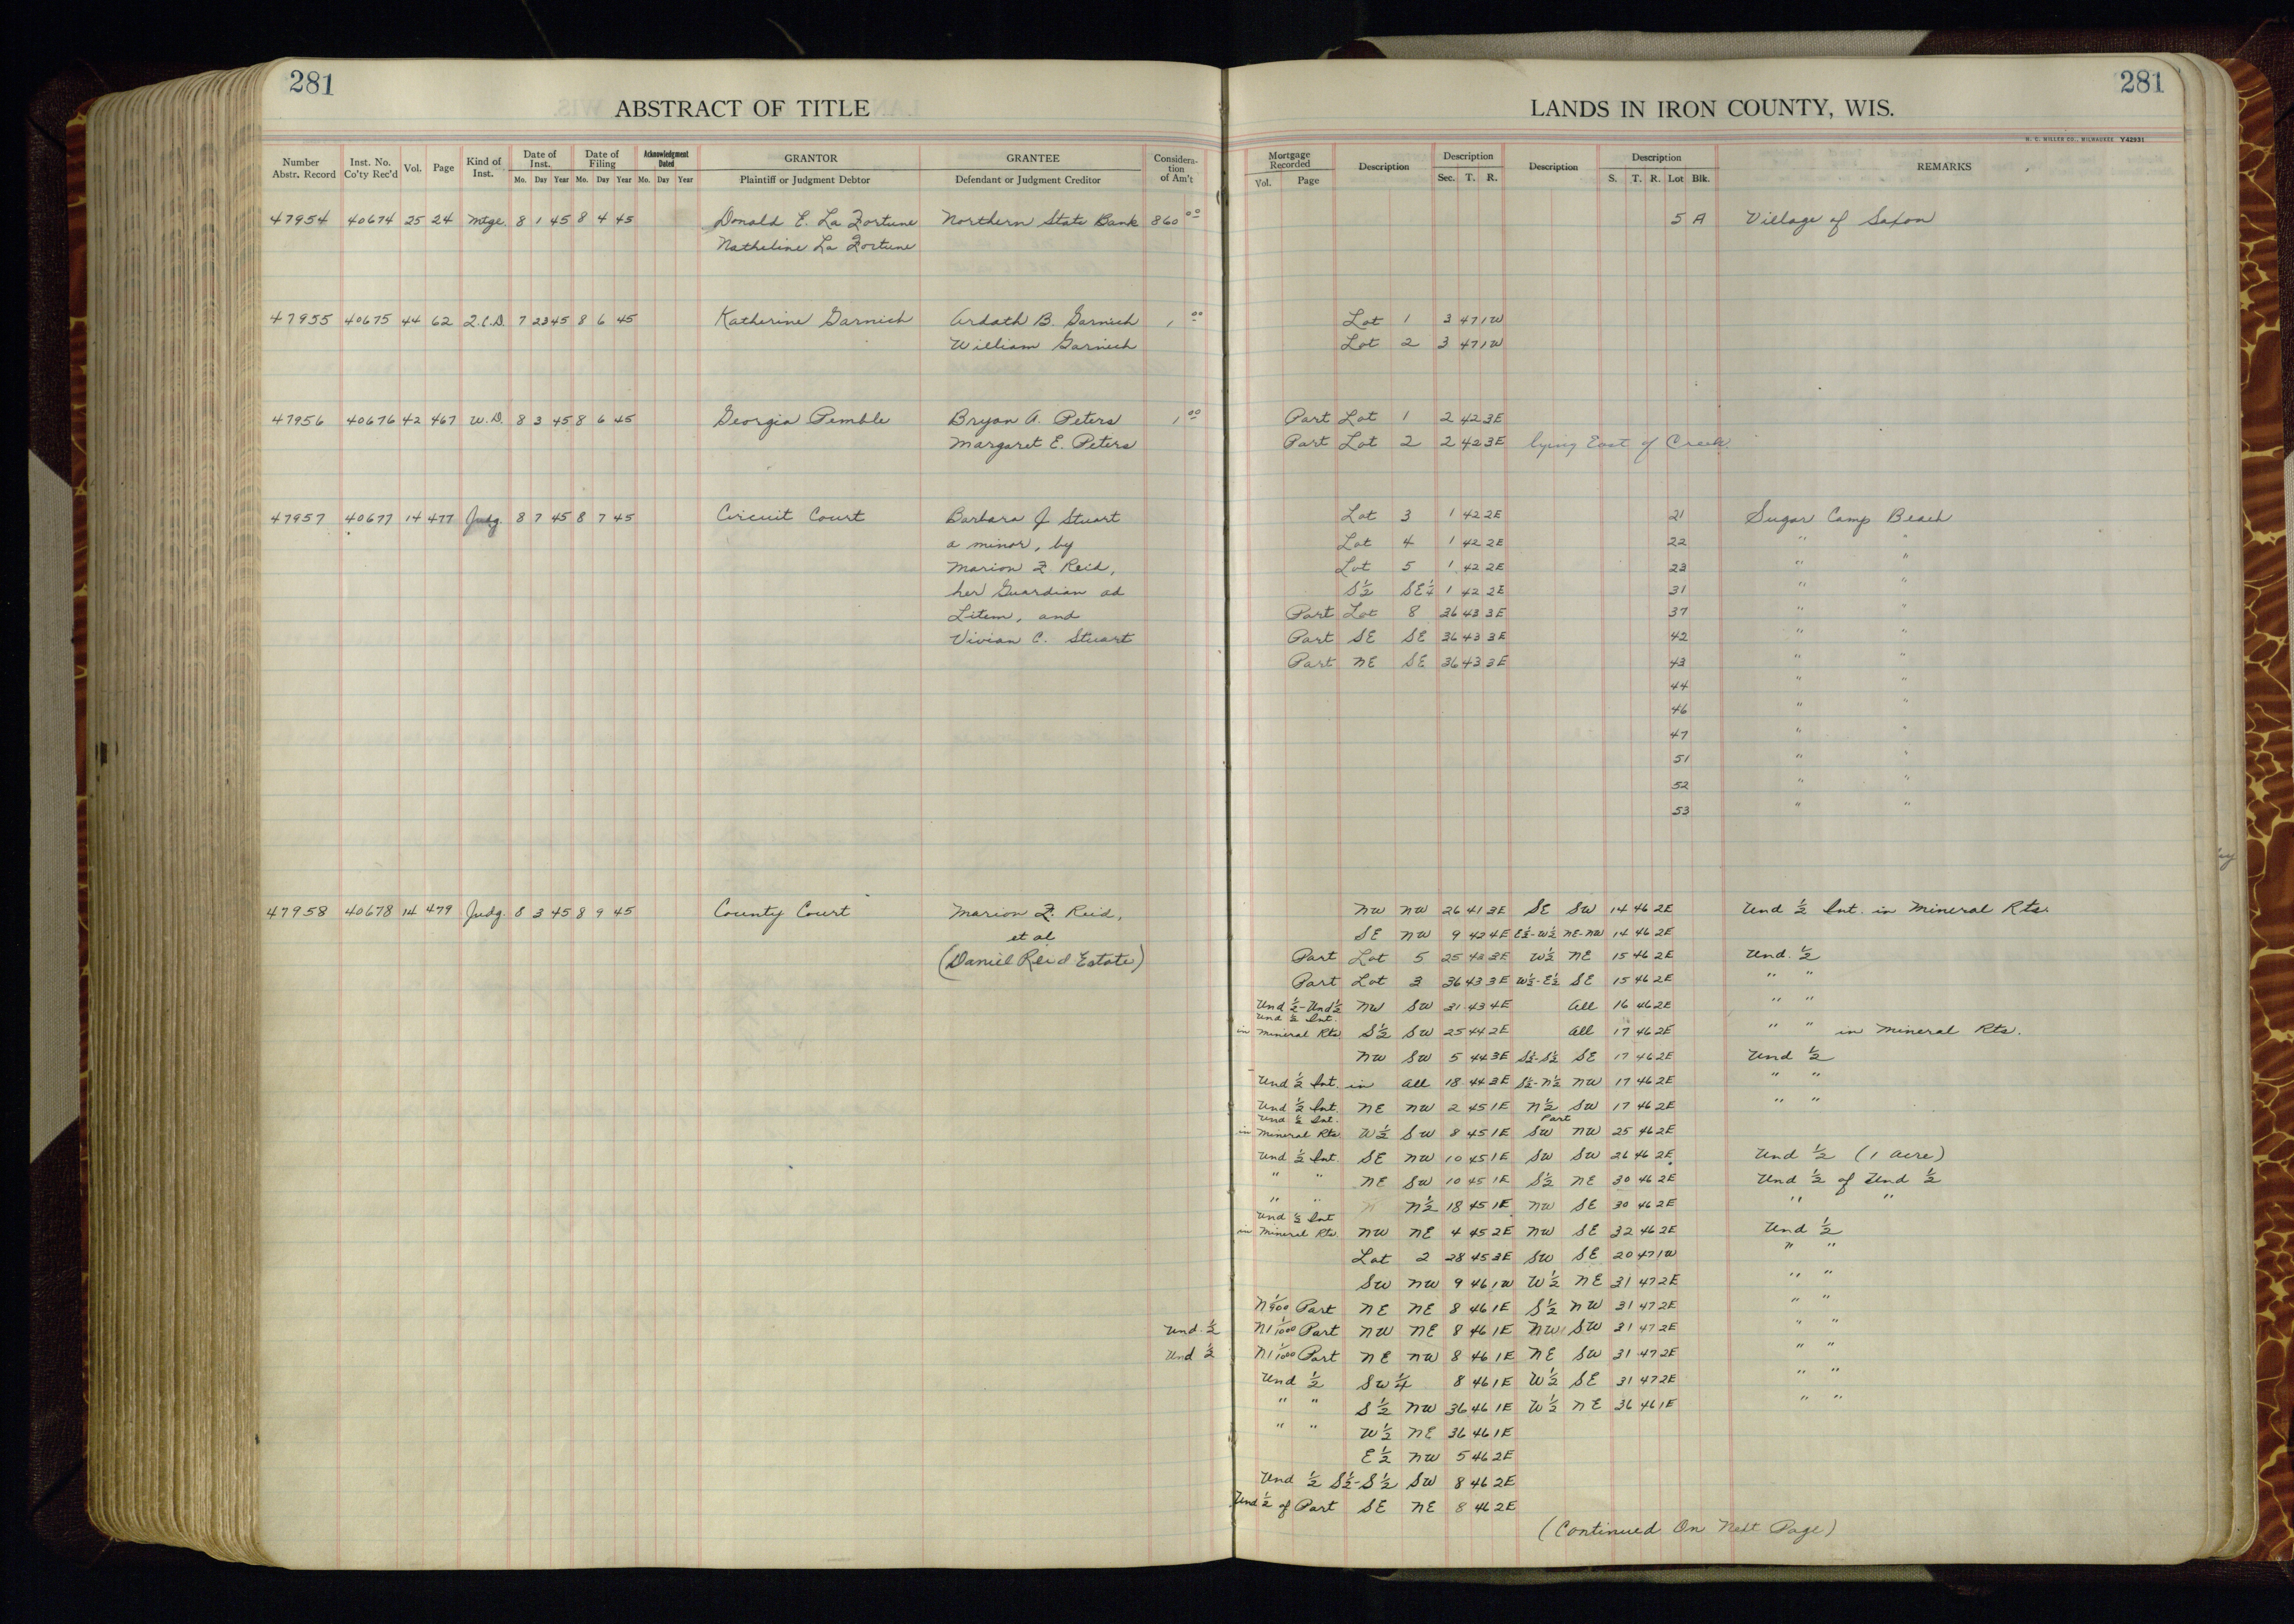 281
281
ABSTRACT OF TITLE
LANDS IN IRON COUNTY, WIS.
H. C. MILLER CO., MILWAUKEE Y42931
Number Abstr. Record Inst. No. Co'ty Rec'd Vol. Page Kind of Inst. Date of Inst. Mo. Day Year Date of Filing Mo. Day Year Acknowledgment Dated Mo. Day Year GRANTOR Plaintiff or Judgment Debtor GRANTEE Defendant or Judgment Creditor Consideration of Am't
Mortgage Recorded Vol. Page Description Description Sec. T. R. Description Description S. T. R. Lot Blk. REMARKS
47954 40674 25 24 Mtge. 8 1 45 8 4 45 Donald E. La Fortune Northern State Bank 860 00 5 A Village of Saxon
Natheline La Fortune
47955 40675 44 62 Q.C.D. 7 23 45 8 6 45 Katherine Garnich Ardath B. Garnich 1 00 Lot 1 3 47 1W
William Garnich Lot 2 3 47 1W
47956 40676 42 467 W.D. 8 3 45 8 6 45 Georgia Pemble Bryan A. Peters 1 00 Part Lot 1 2 42 3E
Margaret E. Peters Part Lot 2 2 42 3E lying East of Creek.
47957 40677 14 477 Judg. 8 7 45 8 7 45 Circuit Court Barbara J Stuart Lot 3 1 42 2E 21 Sugar Camp Beach
a minor, by Lot 4 1 42 2E 22 " "
Marion F. Reid, Lot 5 1 42 2E 23 " "
her Guardian ad S½ SE¼ 1 42 2E 31 " "
Litem, and Part Lot 8 36 43 3E 37 " "
Vivian C. Stuart Part SE SE 36 43 3E 42 " "
Part NE SE 36 43 3E 43 " "
44 " "
46 " "
47 " "
51 " "
52 " "
53 " "
47958 40678 14 479 Judg. 8 3 45 8 9 45 County Court Marion F. Reid, NW NW 26 41 3E SE SW 14 46 2E Und ½ Int. in Mineral Rts.
et al SE NW 9 42 4E E½-W½ NE-NW 14 46 2E
(Daniel Reid Estate) Part Lot 5 25 43 3E W½ NE 15 46 2E Und. ½
Part Lot 3 36 43 3E W½-E½ SE 15 46 2E " "
Und ½-Und ½ NW SW 31 43 4E All 16 46 2E " "
Und ½ Int.
in Mineral Rts S½ SW 25 44 2E All 17 46 2E " " in Mineral Rts.
NW SW 5 44 3E S½-S½ SE 17 46 2E Und ½
Und ½ Int. in All 18 44 3E S½-N½ NW 17 46 2E " "
Und ½ Int. NE NW 2 45 1E N½ SW 17 46 2E " "
Und ½ Int. Part
in Mineral Rts W½ SW 8 45 1E SW NW 25 46 2E
Und ½ Int. SE NW 10 45 1E SW SW 26 46 2E Und ½ (1 acre)
" " NE SW 10 45 1E S½ NE 30 46 2E Und ½ of Und ½
" " N½ 18 45 1E NW SE 30 46 2E " "
Und ½ Int
in Mineral Rts. NW NE 4 45 2E NW SE 32 46 2E Und ½
Lot 2 28 45 3E SW SE 20 47 1W " "
SW NW 9 46 1W W½ NE 31 47 2E " "
Part NE NE 8 46 1E S½ NW 31 47 2E " "
Und. ½ N 1 1/1000 Part NW NE 8 46 1E NW SW 31 47 2E " "
Und ½ N 1 1/1000 Part NE NW 8 46 1E NE SW 31 47 2E " "
Und ½ SW¼ 8 46 1E W½ SE 31 47 2E " "
" " S½ NW 36 46 1E W½ NE 36 46 1E " "
" " W½ NE 36 46 1E
E½ NW 5 46 2E
Und ½ S½-S½ SW 8 46 2E
Und ½ of Part SE NE 8 46 2E
(Continued On Next Page)